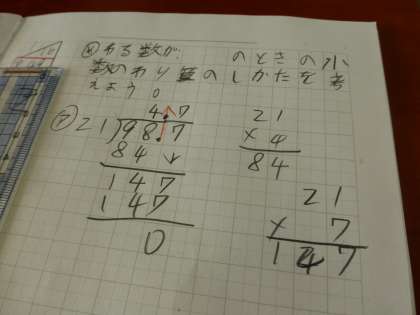 わる数が のときの小
数のわり算のしかたを考
えよう。
4.7
21)98.7
84
147
147
0
21
× 4
84
21
× 7
147